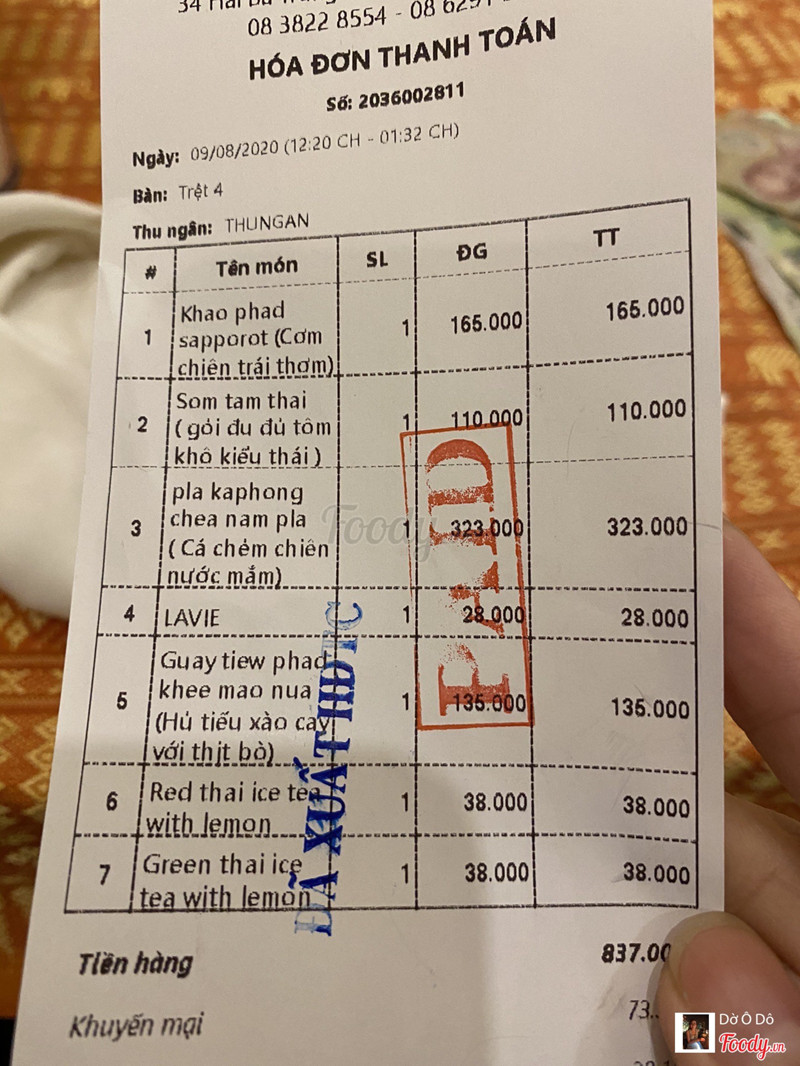 08 3822 8554 - 08
HÓA ĐƠN THANH TOÁN
Số: 2036002811
Ngày: 09/08/2020 (12:20 CH - 01:32 CH)
Bàn: Trệt 4
Thu ngân: THUNGAN
# Tên món SL ĐG TT
1 Khao phad sapporot (Cơm chiên trái thơm) 1 165.000 165.000
2 Som tam thai ( gỏi đu đủ tôm khô kiểu thái ) 1 110.000 110.000
3 pla kaphong chea nam pla ( Cá chẻm chiên nước mắm) 1 323.000 323.000
4 LAVIE 1 28.000 28.000
5 Guay tiew phad khee mao nua (Hủ tiếu xào cay với thịt bò) 1 135.000 135.000
6 Red thai ice tea with lemon 1 38.000 38.000
7 Green thai ice tea with lemon 1 38.000 38.000
PAID
ĐÃ XUẤT HĐTC
Tiền hàng 837.00
Khuyến mại 73
Foody
Dờ Ô Dô
Foody.vn